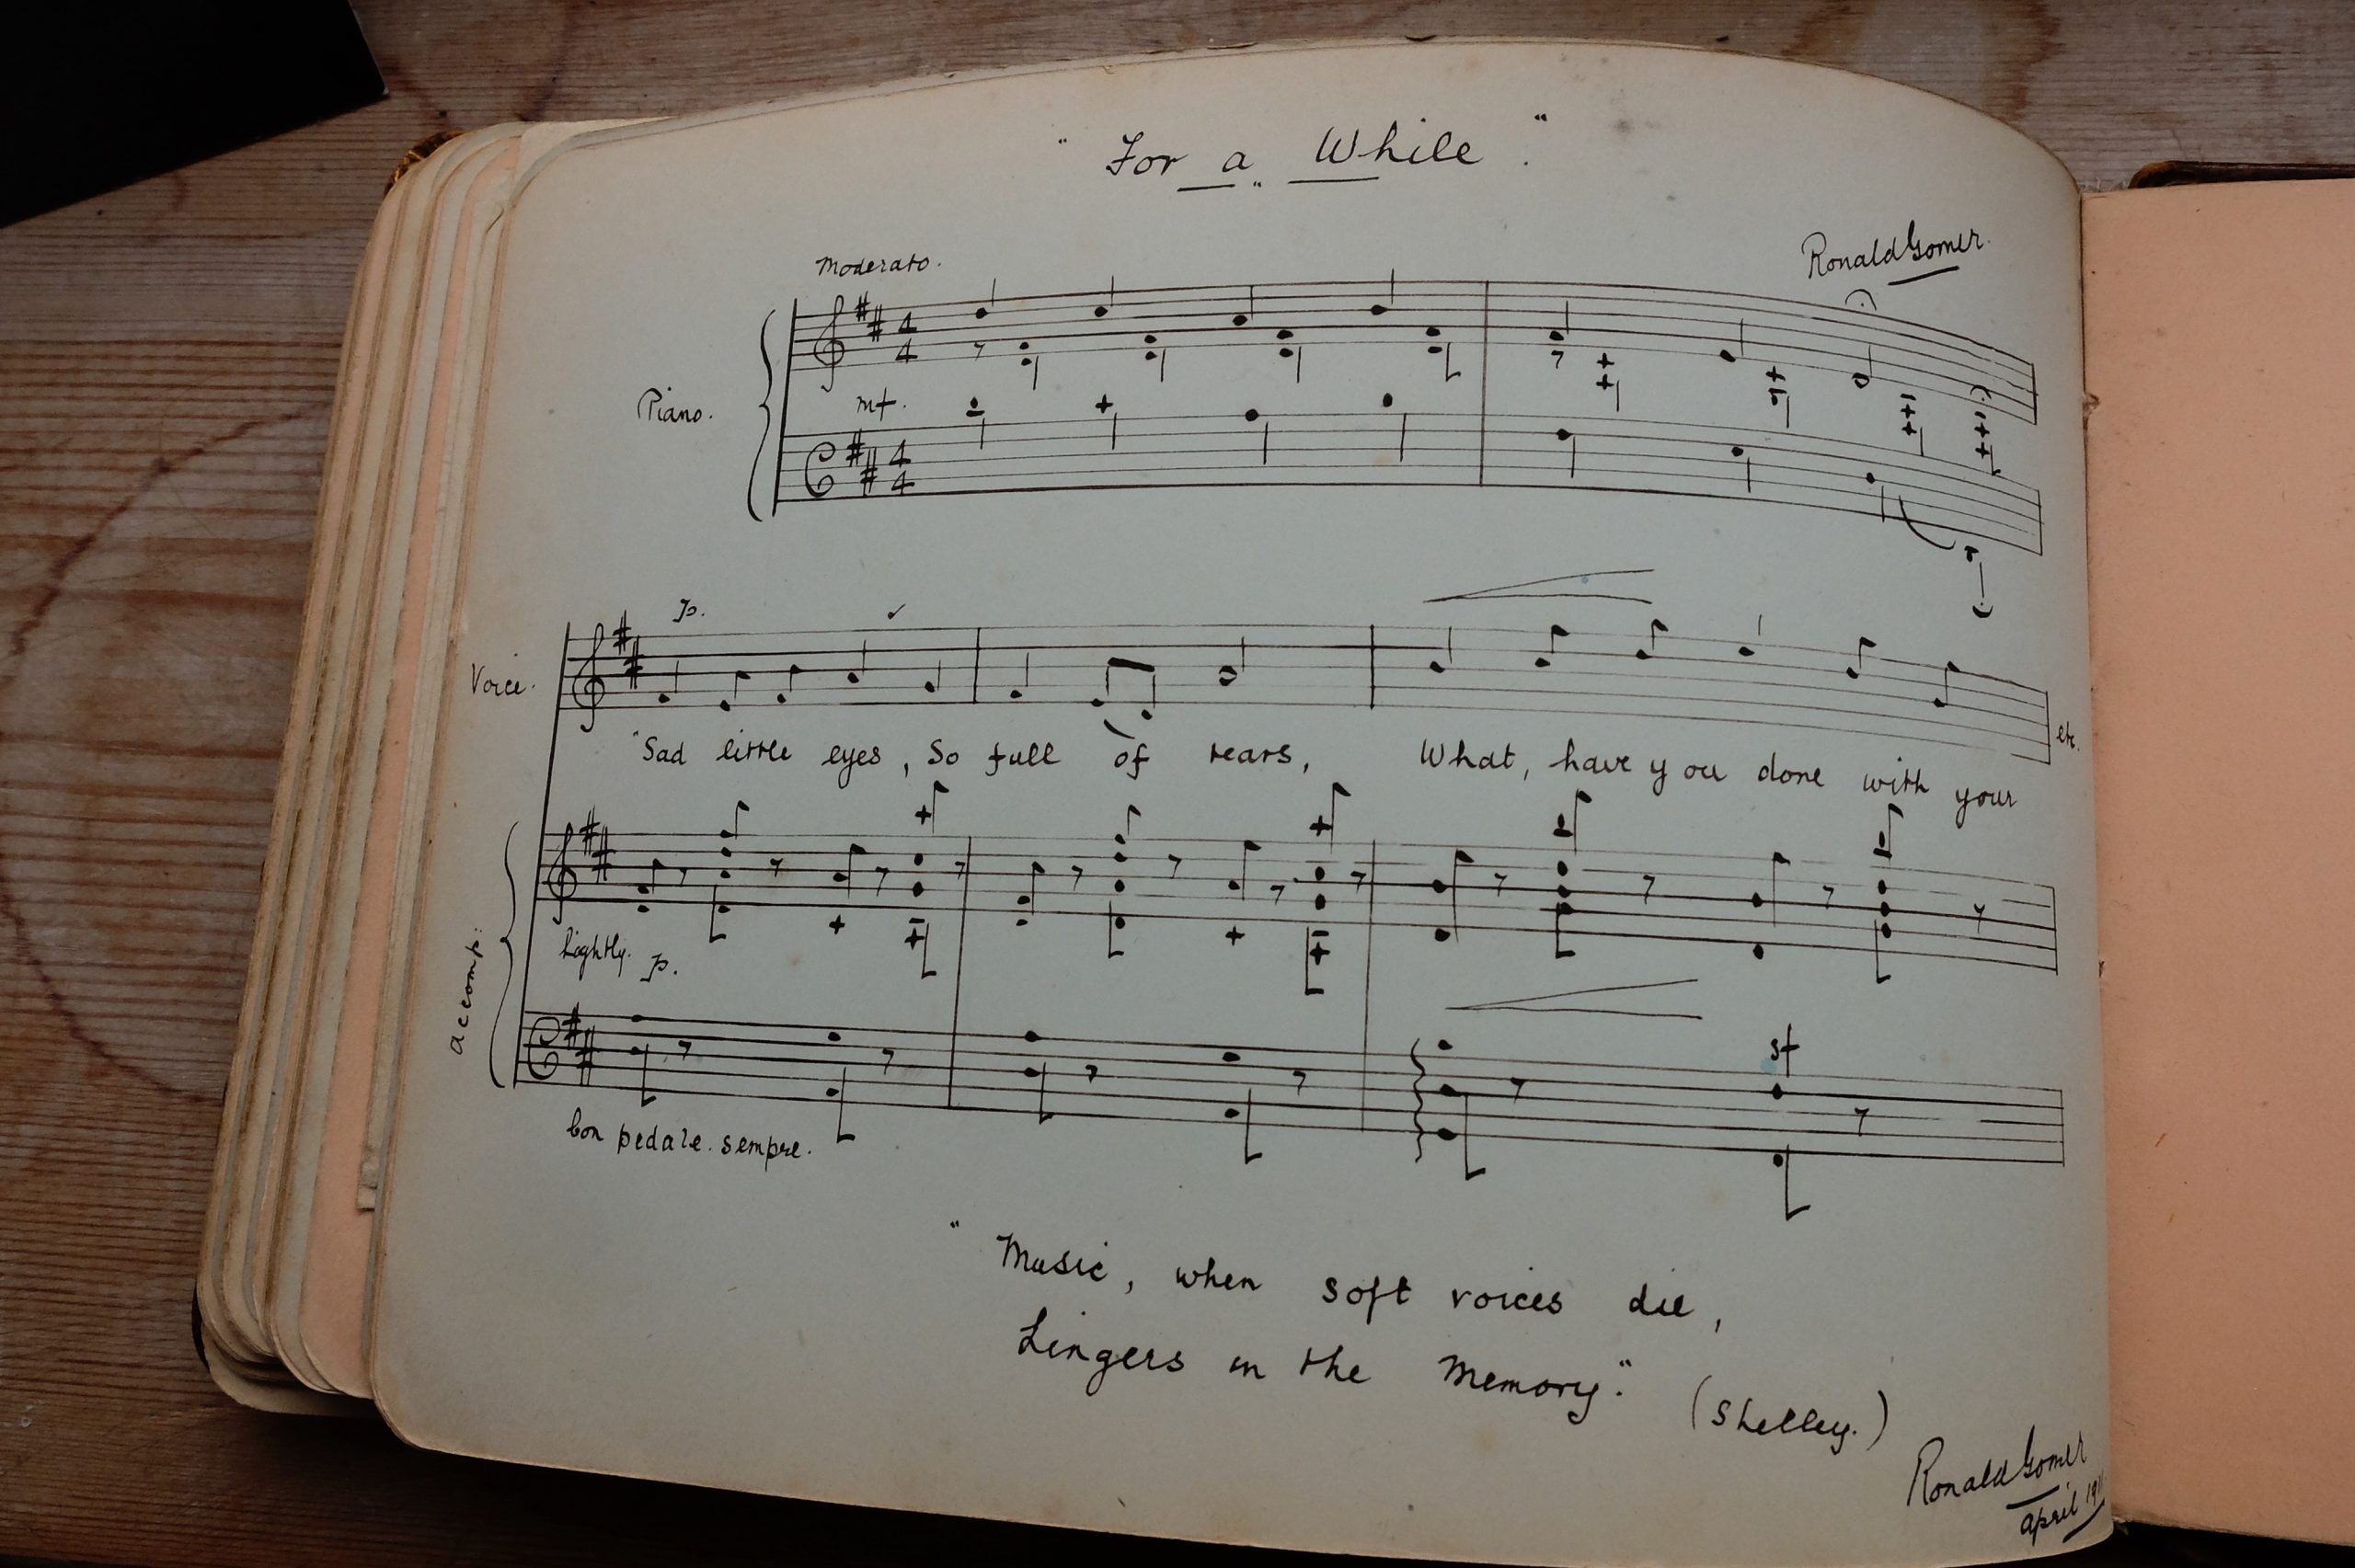 " For a While ."
Ronald Gomer.
Moderato.
4
4
Piano.
mf.
4
4
p.
Voice.
"Sad little eyes, So full of tears, What, have you done with your
etc.
Lightly. p.
accomp:
sf
Con pedale. sempre.
" Music, when soft voices die,
Lingers in the Memory."
(Shelley.)
Ronald Gomer
april